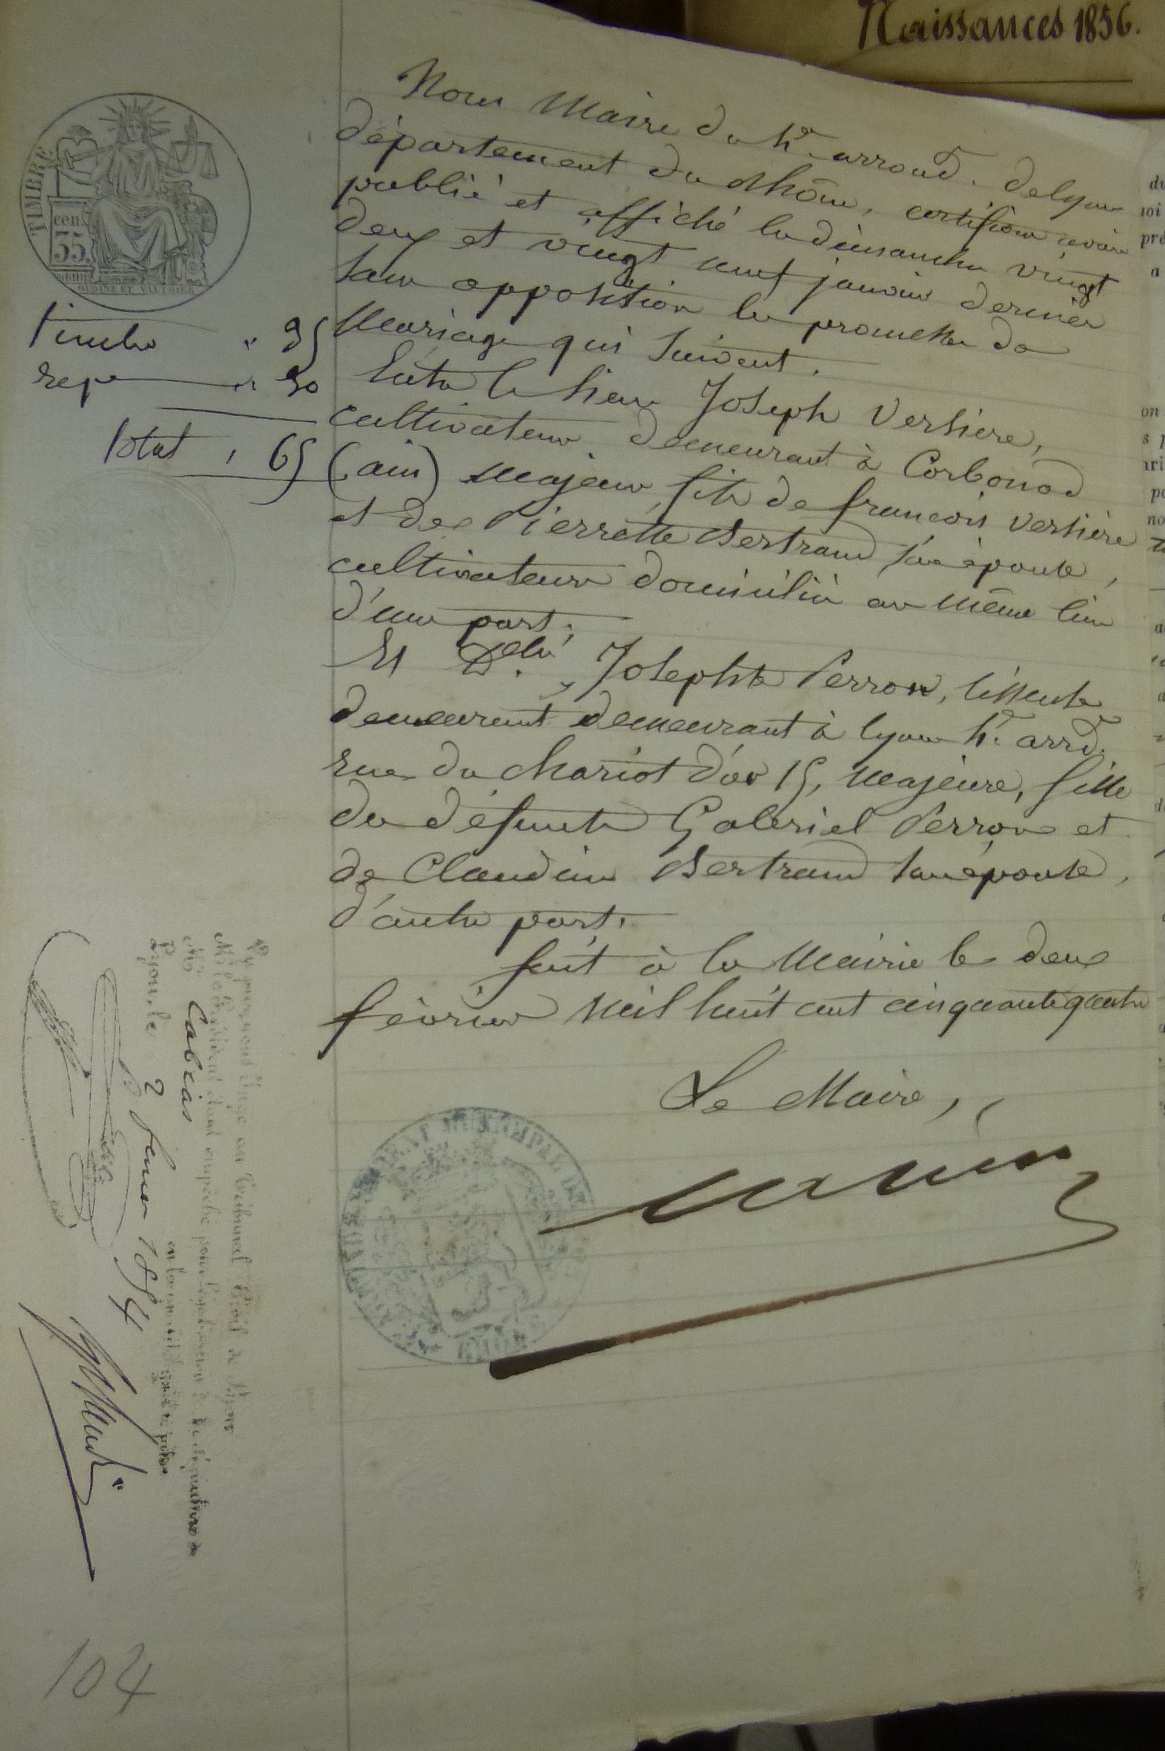 Naissances 1856.
Nous Maire du 4e arrond. de Lyon
département du Rhône, certifions avoir
publié et affiché les dimanches vingt
deux et vingt neuf janvier dernier
sans opposition les promesses de
Mariage qui suivent.
Entre le sieur Joseph Versière,
cultivateur demeurant à Corbonod
(ain) majeur, fils de françois Versière
et de Pierrette Bertrand son épouse,
cultivateurs domiciliés au même lieu
d'une part.
Et Delle Josephte Perron, tisseuse
demeurant demeurant à Lyon 4e arrd.
rue du chariot d'or 15, majeure, fille
de défunts Gabriel Perron et
de Claudine Bertrand son épouse,
d'autre part.
fait à la Mairie le deux
février mil huit cent cinquante quatre
Le Maire,
TIMBRE
cen.
35.
timbre " 35
rep " 30
total , 65
Tribunal Civil de Lyon
empêché pour légalisation de la signature de
Mr Cabias
Lyon, le 2 février 1854
104